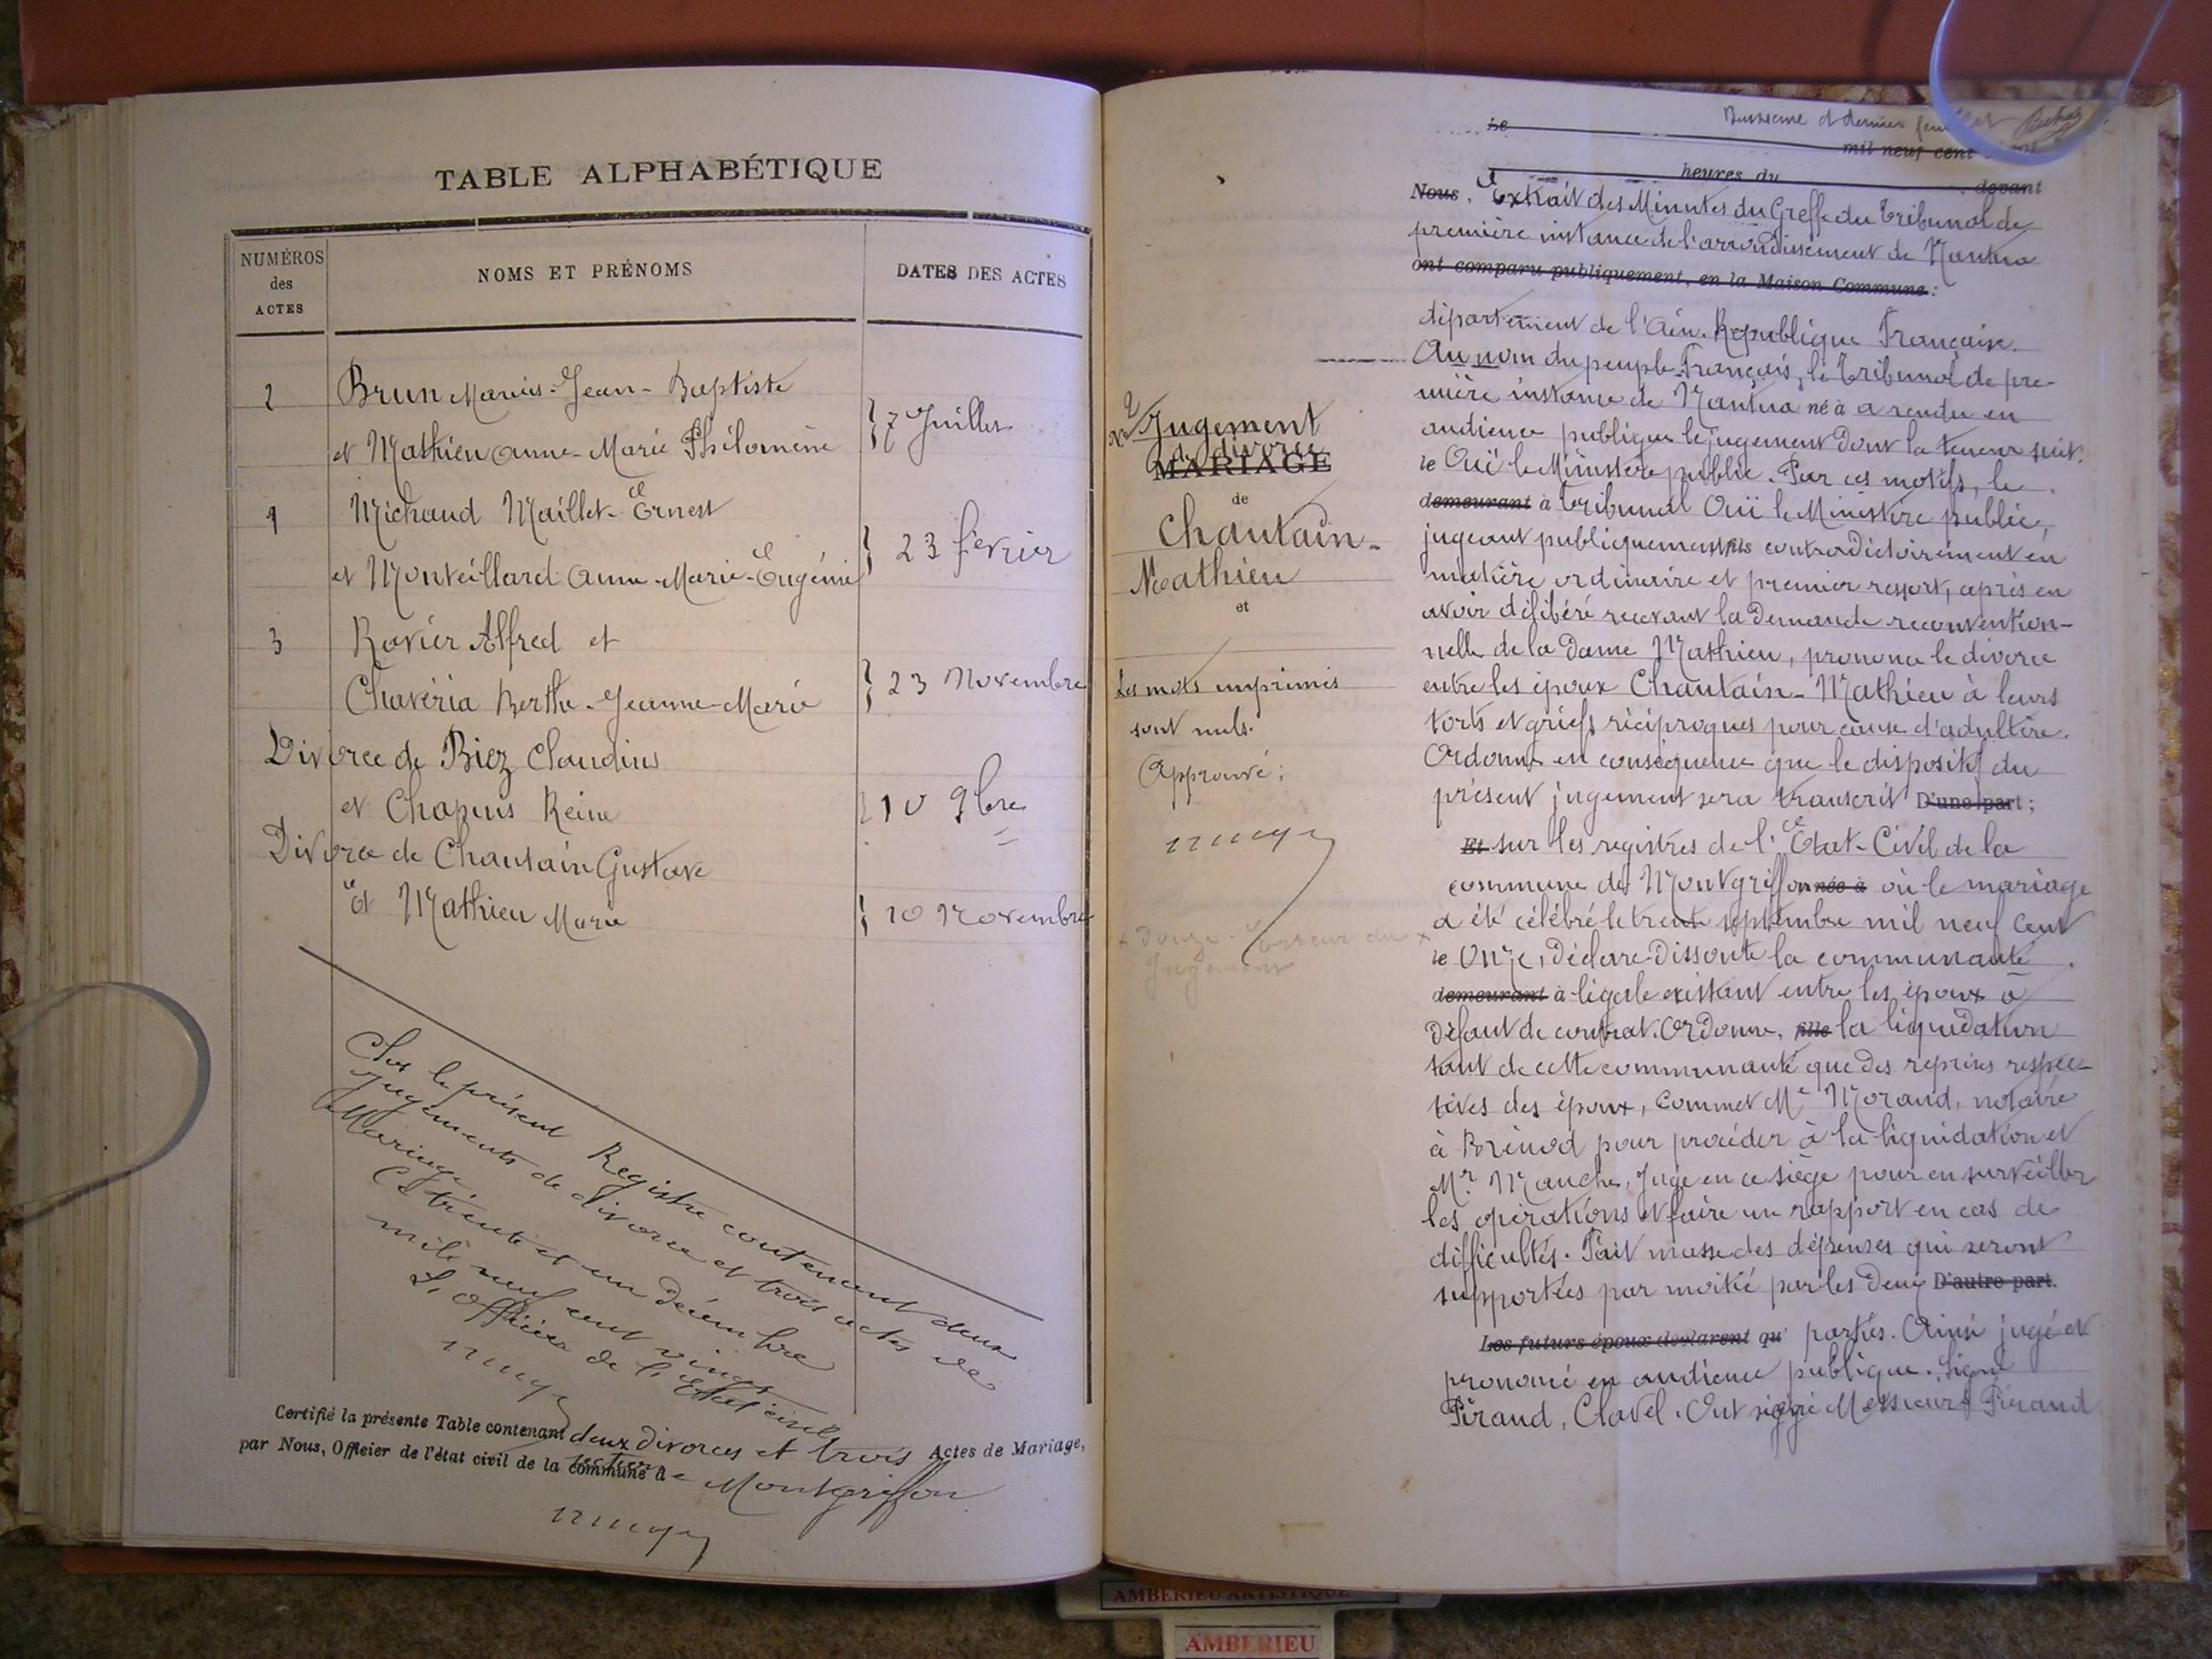 TABLE ALPHABÉTIQUE
NUMÉROS
des
ACTES
NOMS ET PRÉNOMS
DATES DES ACTES
2 Brun Marius-Jean-Baptiste
et Mathieu Anne-Marie Philomène } 7 Juillet
1 Michaud Maillet-Ernest
et Monteillard Anne-Marie-Eugénie } 23 février
3 Ravier Alfred et
Chavéria Berthe-Jeanne-Marie } 23 Novembre
Divorce de Biez Claudius
et Chapuis Reine } 10 9bre
Divorce de Chautain Gustave
et Mathieu Marie } 10 Novembre
Clos le présent Registre contenant deux
jugements de divorce et trois actes de
Mariage
Ce trente et un décembre
mil neuf cent vingt
L'Officier de l'Etat civil
Certifié la présente Table contenant deux divorces et trois Actes de Mariage,
par Nous, Officier de l'état civil de la commune d section de Montgriffon
AMBERIEU ARTISTIQUE
AMBERIEU
et dernier
Le
mil neuf cent
heures du devant
Nous, Extrait des Minutes du Greffe du Tribunal de
première instance de l'arrondissement de Nantua
ont comparu publiquement, en la Maison Commune :
département de l'Ain. République Française.
Au nom du peuple Français, le Tribunal de pre-
mière instance de Nantua né à a rendu en
audience publique le jugement dont la teneur suit.
le Ouï le Ministère public. Par ces motifs, le
demeurant à Tribunal Ouï le Ministère public,
jugeant publiquement fils contradictoirement en
matière ordinaire et premier ressort, après en
avoir délibéré recevant la Demande reconvention-
nelle de la Dame Mathieu, prononce le divorce
entre les époux Chautain-Mathieu à leurs
torts et griefs réciproques pour cause d'adultère.
Ordonne en conséquence que le dispositif du
présent jugement sera transcrit D'une part ;
Et sur les registres de l'Etat-Civil de la
commune de Montgriffon née à où le mariage
a été célébré le trente septembre mil neuf cent
le Onze, Déclare Dissoute la communauté
demeurant à légale existant entre les époux à
Défaut de contrat. Ordonne, fille la liquidation
tant de cette communauté que des reprises respec-
tives des époux, Commet Me Morand, notaire
à Brénod pour procéder à la liquidation et
Mr Manche, Juge en ce siège pour en surveiller
les opérations et faire un rapport en cas de
difficultés. Fait masse des dépenses qui seront
supportées par moitié par les Deux D'autre part.
Les futurs époux déclarent qu' parties. Ainsi jugé et
prononcé en audience publique. Signé
Péraud, Clavel. Ont siégé Messieurs Péraud
No 2
Jugement
de divorce
MARIAGE
de
Chautain-
Mathieu
et
Les mots imprimés
sont nuls.
Approuvé ;
x Douze. Erreur du x
Jugement